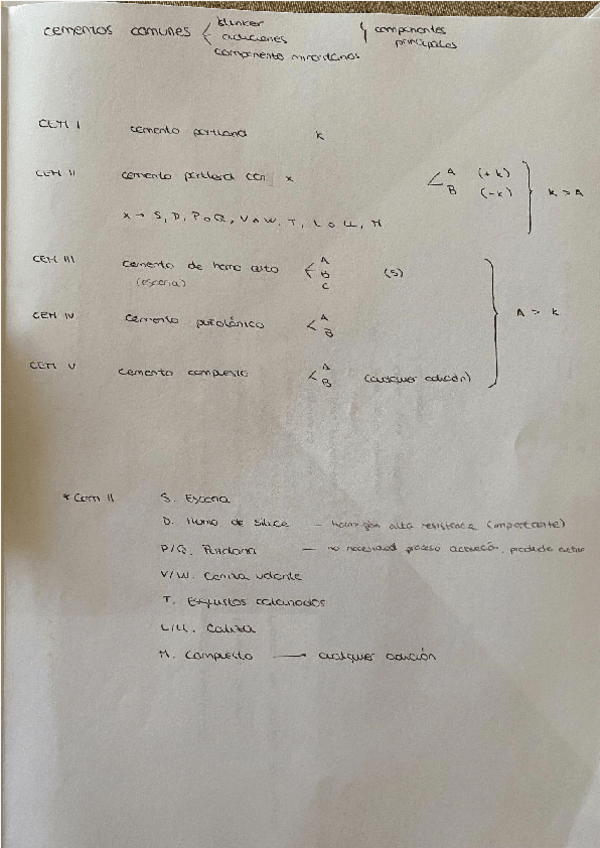 cementos comunes < klinker } componentes
adiciones principales
componentes minoritarios
CEM I cemento portland K
CEM II cemento portland con x < A (+K) } K > A
B (-K)
x → S, D, P o Q, V o W, T, L o LL, M
CEM III cemento de horno alto < A (S) } A > K
(escoria) B
C
CEM IV cemento puzolánico < A
B
CEM V cemento compuesto < A (cualquier adición)
B
* CEM II S. Escoria
D. Humo de sílice – hormigón alta resistencia (importante)
P/Q. Puzolana – no necesidad proceso
V/W. Ceniza volante
T. Esquistos calcinados
L/LL. Caliza
M. Compuesto → cualquier adición